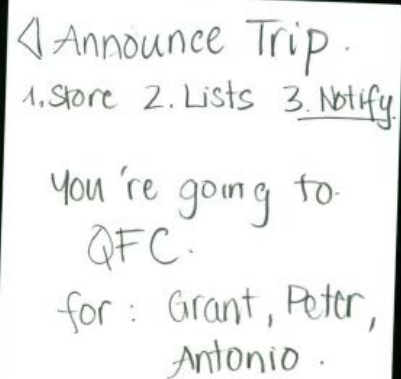 Announce Trip.
1. Store 2. Lists 3. Notify
You're going to
QFC.
for: Grant, Peter,
Antonio.